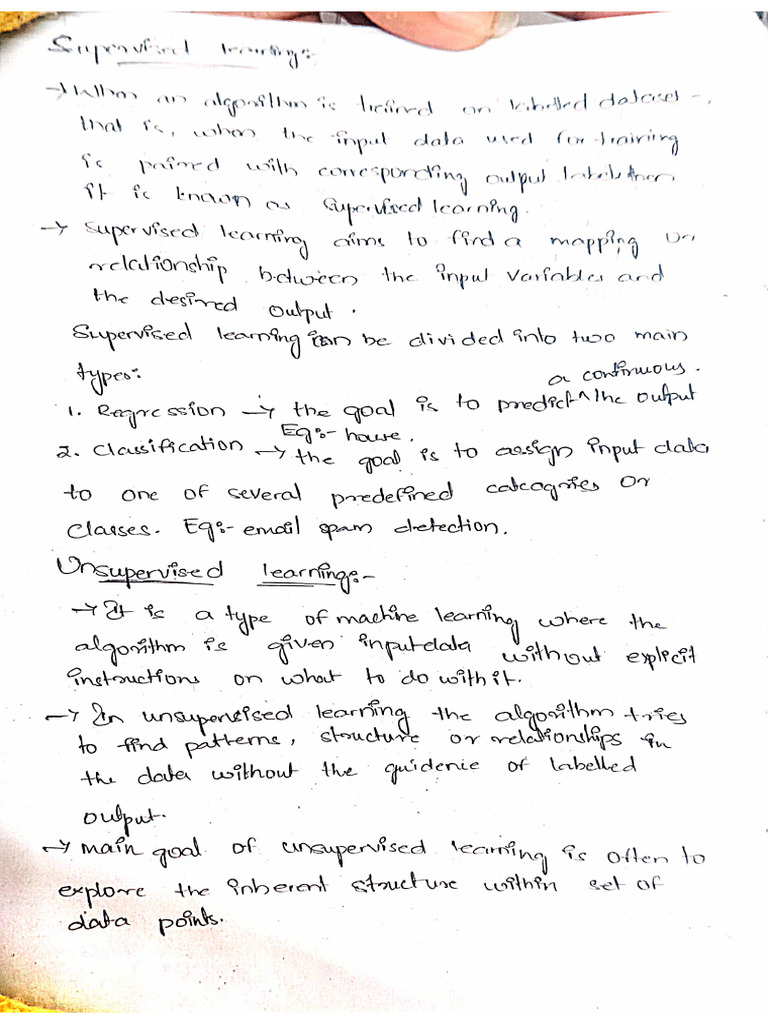 Supervised learning:-
→ When an algorithm is trained on labelled dataset,
that is, when the input data used for training
is paired with corresponding output labels then
it is known as Supervised learning.
→ Supervised learning aims to find a mapping or
relationship between the input variables and
the desired output.
Supervised learning can be divided into two main
types:
a continuous.
1. Regression → the goal is to predict ^ the output
Eg:- house.
2. Classification → the goal is to assign input data
to one of several predefined categories or
classes. Eg:- email spam detection.
Unsupervised learning:-
→ It is a type of machine learning where the
algorithm is given input data without explicit
instructions on what to do with it.
→ In unsupervised learning the algorithm tries
to find patterns, structure or relationships in
the data without the guidenie of labelled
output.
→ main goal of unsupervised learning is often to
explore the inherent structure within set of
data points.